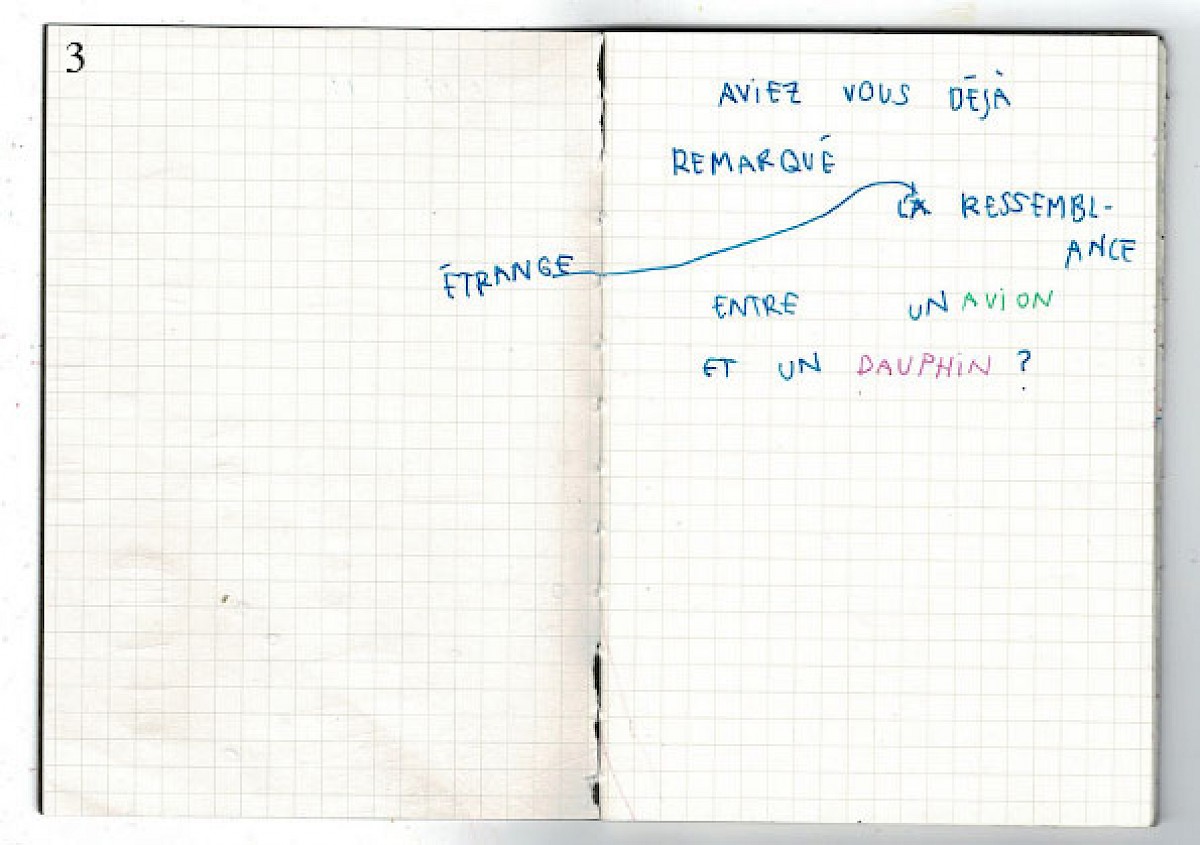 3
AVIEZ VOUS DÉJÀ
REMARQUÉ
LA RESSEMBL-
ANCE
ÉTRANGE
ENTRE UN AVION
ET UN DAUPHIN ?